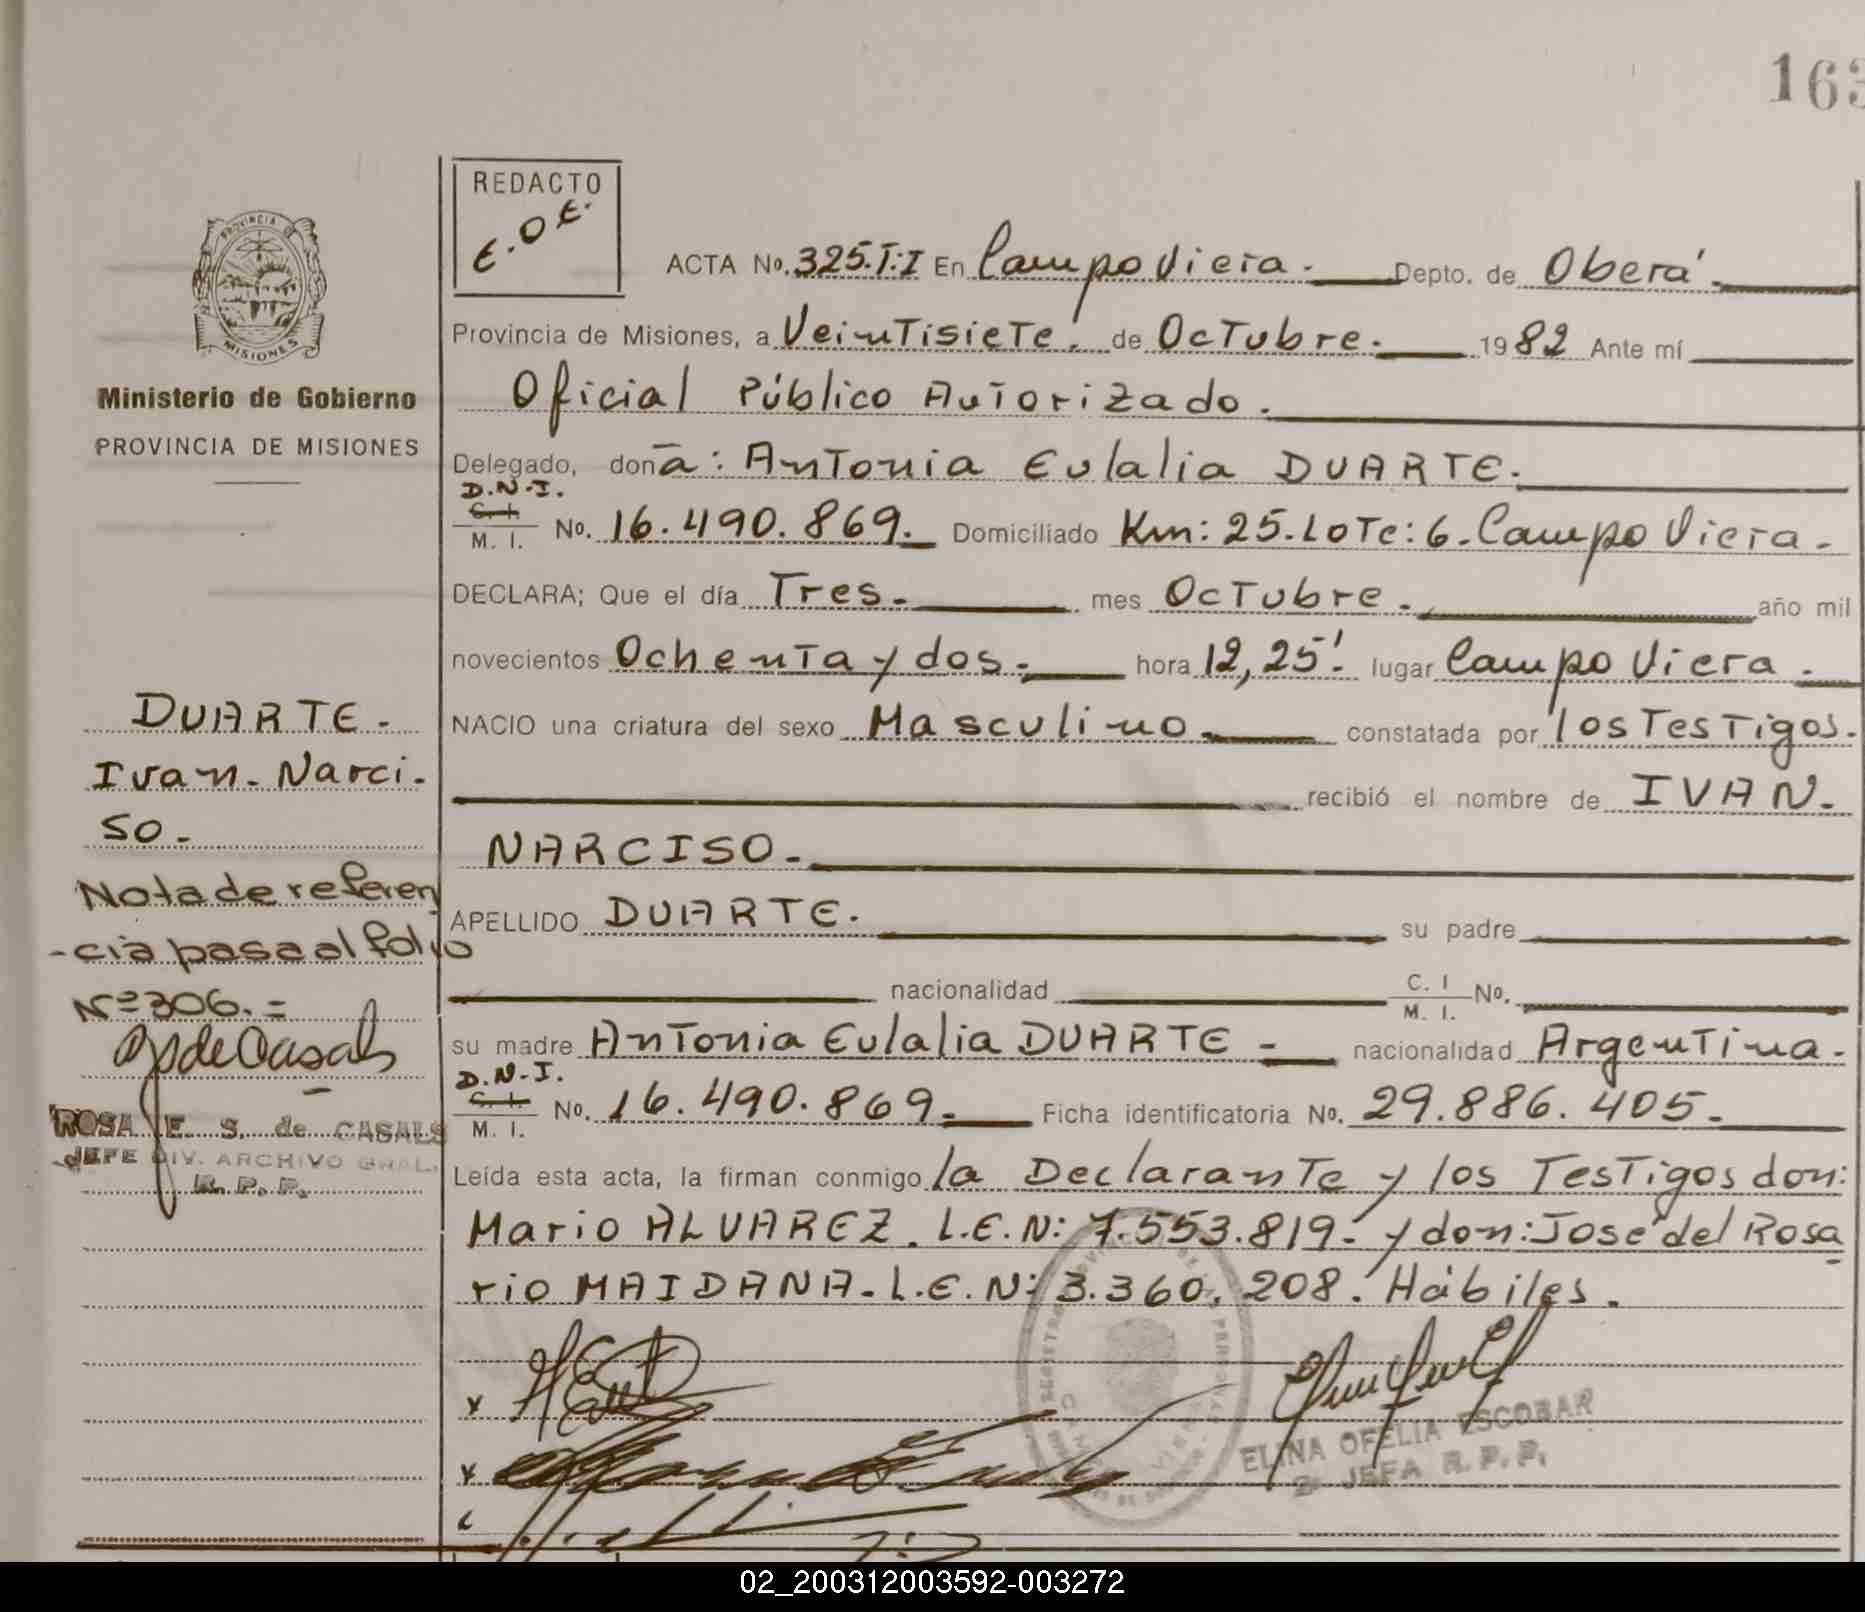 163
REDACTO
E.O.E.
PROVINCIA DE
MISIONES
Ministerio de Gobierno
PROVINCIA DE MISIONES
ACTA No. 325.T:I En Campo Viera. Depto. de Oberá.
Provincia de Misiones, a VeinTisieTe. de OcTubre. 1982 Ante mí
Oficial Público AuTorizado.
Delegado, don a: AnTonia Eulalia DUARTE.
D.N.I.
C. I.
M. I. No. 16.490.869. Domiciliado Km: 25. LoTe: 6. Campo Viera.
DECLARA; Que el día Tres. mes OcTubre. año mil
novecientos OchenTa y dos. hora 12,25'. lugar Campo Viera.
NACIO una criatura del sexo Masculino. constatada por los TesTigos.
recibió el nombre de IVAN.
NARCISO.
APELLIDO DUARTE. su padre
nacionalidad C. I M. I. No.
su madre AnTonia Eulalia DUARTE - nacionalidad ArgenTina.
D.N.I.
C. I.
M. I. No. 16.490.869. Ficha identificatoria No. 29.886.405.
Leída esta acta, la firman conmigo la DeclaranTe y los TesTigos don:
Mario ALVAREZ. L.E.N: 7.553.819. y don: José del Rosa
rio MAIDANA. L.E.N: 3.360.208. Hábiles.
DUARTE.
Ivan. Narci.
so.
Nota de referen
-cia pasa al folio
Nº 306.=
ROSA E. S. de CASALS
JEFE DIV. ARCHIVO GRAL.
R. P. P.
ELINA OFELIA ESCOBAR
2º JEFA R. P. P.
02_200312003592-003272